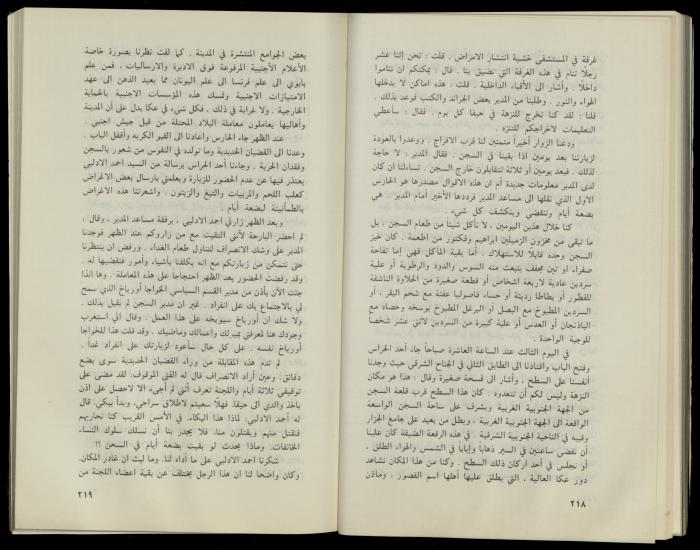 غرفة في المستشفى خشية انتشار الامراض . قلت : نحن إثنا عشر
رجلًا ننام في هذه الغرفة التي تضيق بنا . قال : يمكنكم ان تناموا
داخلًا . وأشار الى الأقباء الداخلية . قلت : هذه اماكن لا يدخلها
الهواء والنور . وطلبنا من المدير بعض الجرائد والكتب فوعد بذلك .
قلنا : لقد كنا نخرج للنزهة في حيفا كل يوم . فقال : سأعطي
التعليمات لاخراجكم للتنزه .
ودعنا الزوار أخيراً متمنين لنا قرب الافراج . ووعدوا بالعودة
لزيارتنا بعد يومين اذا بقينا في السجن . فقال المدير : لا حاجة
لذلك . فبعد يومين أو ثلاثة لتتقابلون خارج السجن . تساءلنا ان كان
لدى المدير معلومات جديدة أم ان هذه الاقوال مصدرها هو الحارس
الاول الذي نقلها الى مساعد المدير فرددها الأخير أمام المدير .. هي
بضعة أيام وتنقضي وينكشف كل شيء .
كنا خلال هذين اليومين . لا نأكل شيئاً من طعام السجن . بل
ما تبقى من مخزون الزميلين ابراهيم وفكتور من اطعمة . كان خبز
السجن وحده قابلًا للاستهلاك . أما بقية المآكل فهي إما تفاحة
صفراء او تين مجفف ينبعث منه السوس والدود والرطوبة أو علبة
سردين عادية لاربعة اشخاص أو قطعة صغيرة من الحلاوة الناشفة
للفطور أو بطاطا رديئة أو حساء فاصوليا عفنة مع شحم البقر ، أو
السردين المطبوخ مع البصل أو البرغل المطبوخ بوسخه وحصاه مع
الباذنجان أو العدس أو علبة كبيرة من السردين لاثني عشر شخصاً
للوجبة الواحدة .
في اليوم الثالث عند الساعة العاشرة صباحاً جاء أحد الحراس
وفتح الباب واقتادنا الى الطابق الثاني في الجناح الشرقي حيث وجدنا
أنفسنا على السطح . وأشار الى فسحة صغيرة وقال : هذا هو مكان
النزهة وليس لكم أن تتعدوه . كان هذا السطح قرب قلعة السجن
من الجهة الجنوبية الغربية ويشرف على ساحة السجن الواسعة
الواقعة الى الجهة الجنوبية الغربية ، ويطل من بعيد على جامع الجزار
وقبيه في الناحية الجنوبية الشرقية . في هذه الرقعة الضيقة كان علينا
أن نقضي ساعتين في السير ذهاباً وإياباً في الشمس والهواء الطلق ،
أو نجلس في أحد اركان ذلك السطح . وكنا من هذا المكان نشاهد
دور عكا العالية ، التي يطلق عليها أهلها اسم القصور ، ومآذن
٢١٨
بعض الجوامع المنتشرة في المدينة . كما لفت نظرنا بصورة خاصة
الأعلام الأجنبية المرفوعة فوق الاديرة والارساليات . فمن علم
بابوي الى علم فرنسا الى علم اليونان مما يعيد الذهن الى عهد
الامتيازات الاجنبية وتمسك هذه المؤسسات الاجنبية بالحماية
الخارجية . ولا غرابة في ذلك . فكل شيء في عكا يدل على أن المدينة
وأهاليها يعاملون معاملة البلاد المحتلة من قبل جيش أجنبي .
عند الظهر جاء الحارس واعادنا الى القبو الكريه وأقفل الباب .
وعدنا الى القضبان الحديدية وما تولده في النفوس من شعور بالسجن
وفقدان الحرية . وجاءنا أحد الحراس برسالة من السيد احمد الادلبي
يعتذر فيها عن عدم الحضور للزيارة ويعلمني بارسال بعض الاغراض
كعلب اللحم والمربيات والتبغ والزيتون . واشعرتنا هذه الاغراض
بالطمأنينة لبضعة أيام .
وبعد الظهر زارني احمد الادلبي ، يرافقه مساعد المدير ، وقال :
لم احضر البارحة لأنني التقيت مع من زاروكم عند الظهر فوجدنا
المدير على وشك الانصراف لتناول طعام الغداء . ورفض ان ينتظرنا
حتى نتمكن من زيارتكم مع انه يكلفنا بأشياء وأمور فنقضيها له .
وقد رفضت الحضور بعد الظهر احتجاجاً على هذه المعاملة . وها انذا
جئت الآن بأذن من مدير القسم السياسي الخواجا أورباخ الذي سمح
لي بالاجتماع بك على انفراد . غير ان مدير السجن لم يقبل بذلك .
ولا شك ان أورباخ سيوبخه على هذا العمل . وقال اني استغرب
وجودك هنا لمعرفتي بميولك واعمالك وماضيك . وقد قلت هذا للخواجا
أورباخ نفسه . على كل حال سأعود لزيارتك على انفراد غداً .
لم تدم هذه المقابلة من وراء القضبان الحديدية سوى بضع
دقائق . وحين أراد الانصراف قال له الفتى الموقوف: لقد مضى على
توقيفي ثلاثة أيام واللجنة تعرف أنني لم أجيء الا لاحصل على اذن
باخذ والدي الى حيفا. فهلا سعيتم لاطلاق سراحي. وبدأ يبكي. قال
له أحمد الادلبي: لماذا هذا البكاء. في الأمس القريب كنا نحاربهم
فنقتل منهم ويقتلون منا. فلا يجدر بنا أن نسلك سلوك النساء
الخائفات. وماذا يحدث لو بقيت بضعة أيام في السجن ؟!
شكرنا احمد الادلبي على ما أداه لنا. وما لبث ان غادر المكان.
وكان واضحا لنا ان هذا الرجل يختلف عن بقية اعضاء اللجنة من
٢١٩